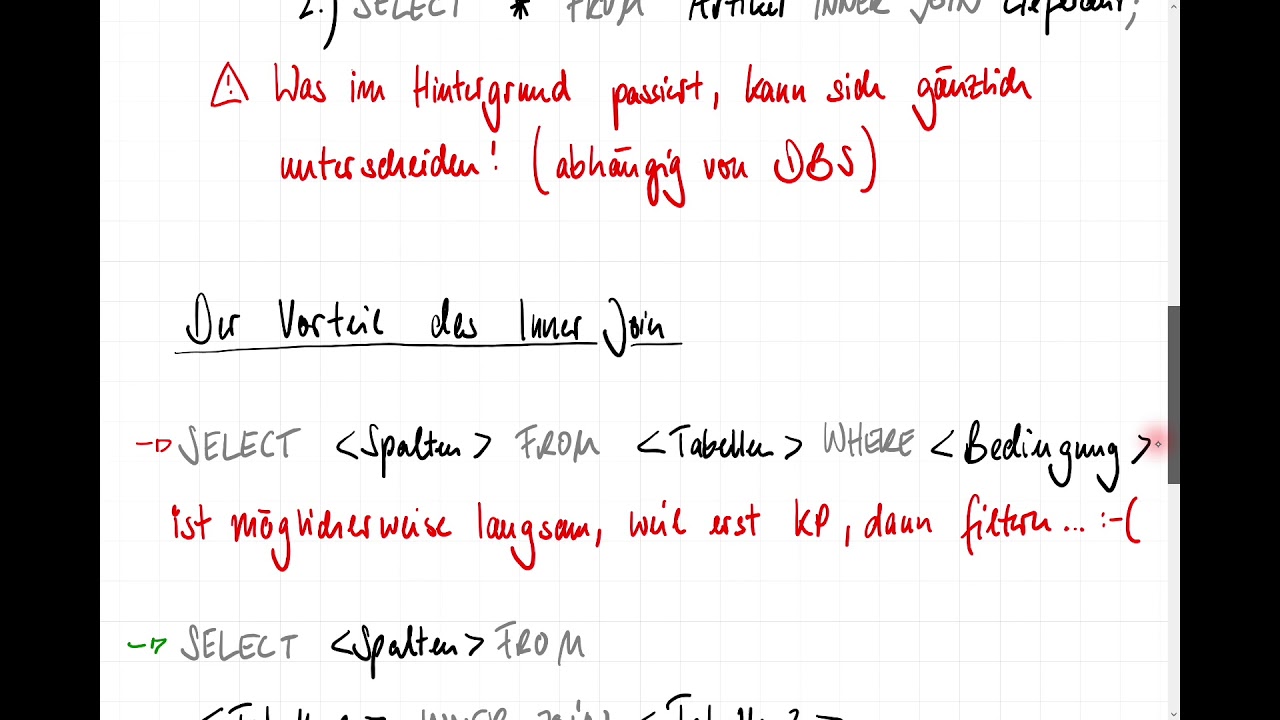 2.) SELECT * FROM Artikel INNER JOIN Lieferant;
⚠ Was im Hintergrund passiert, kann sich gänzlich
unterscheiden! (abhängig von DBS)
Der Vorteil des Inner Join
→ SELECT <Spalten> FROM <Tabellen> WHERE <Bedingung>
ist möglicherweise langsam, weil erst KP, dann filtern... :-(
→ SELECT <Spalten> FROM
<Tabelle1> INNER JOIN <Tabelle2>